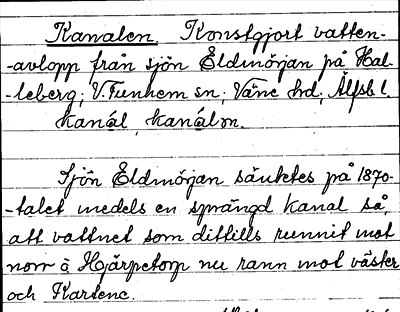 Kanalen. Konstgjort vatten-
-avlopp från sjön Eldmörjan på Hal-
-leberg; V. Tunhem sn; Väne hd; Älfsb l.
kanál, kanálen.
Sjön Eldmörjan sänktes på 1870-
-talet medels en sprängd kanal så,
att vattnet som dittills runnit mot
norr å Hjärpetorp nu rann mot väster
och Kartene.